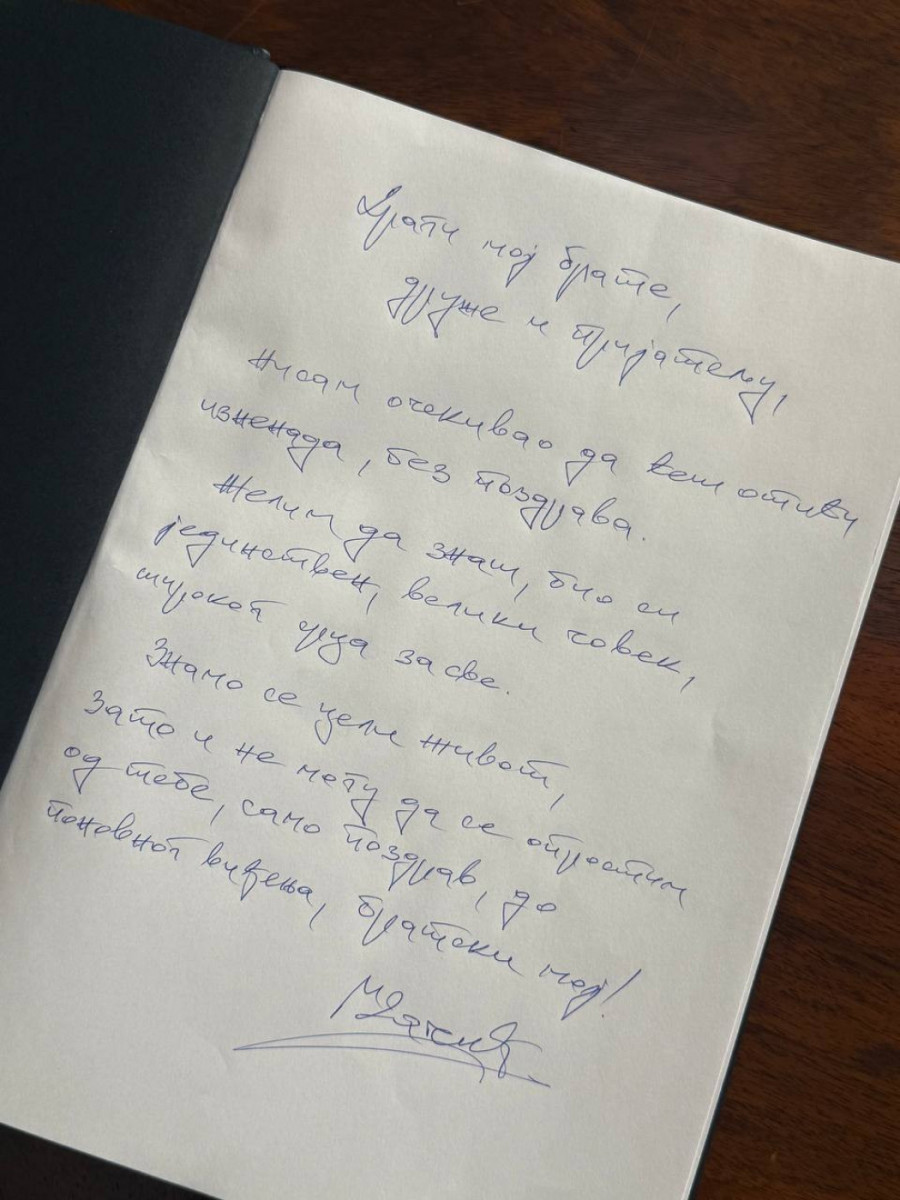 Драги мој брате,
друже и пријатељу,
Нисам очекивао да ћеш отићи
изненада, без поздрава.
Желим да знаш, био си
јединствен, велики човек,
широког срца за све.
Знамо се цели живот,
зато и не могу да се опростим
од тебе, само поздрав, до
поновног виђења, братски мој!